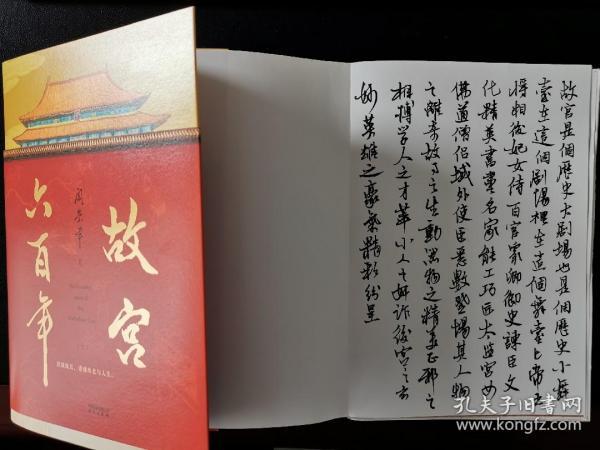 故宫
六百年
阎崇年
故宫是個歷史大劇場也是個歷史小舞
臺在這個劇場裡在這個舞臺上帝王
將相后妃女侍百官眾卿御史諫臣文
化精英書畫名家能工巧匠太监宫女
佛道僧侣域外使臣悉數登場其人物
之離奇故事之生動器物之精美正邪之
相搏学人之才華小人之奸诈後宫之
妙英雄之豪氣精彩纷呈
孔夫子旧书网
www.kongfz.com